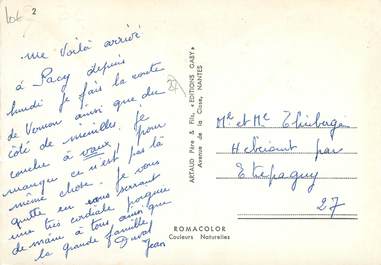 lot 2
me Voilà arrivé
à Pacy depuis
lundi je fais la route
de Vernon ainsi que du
côté de menilles. je
couche à vaux, pour
manger ce n'est pas là
même chose. je vous
quitte en vous serrant
une très cordiale poignée
de main à tous ainsi que
la grande famille
Duval
Jean
27
ARTAUD Père & Fils, « EDITIONS GABY »
Avenue de la Close, NANTES
Mr et Me
Hebécourt par
Etrépagny
27
ROMACOLOR
Couleurs Naturelles